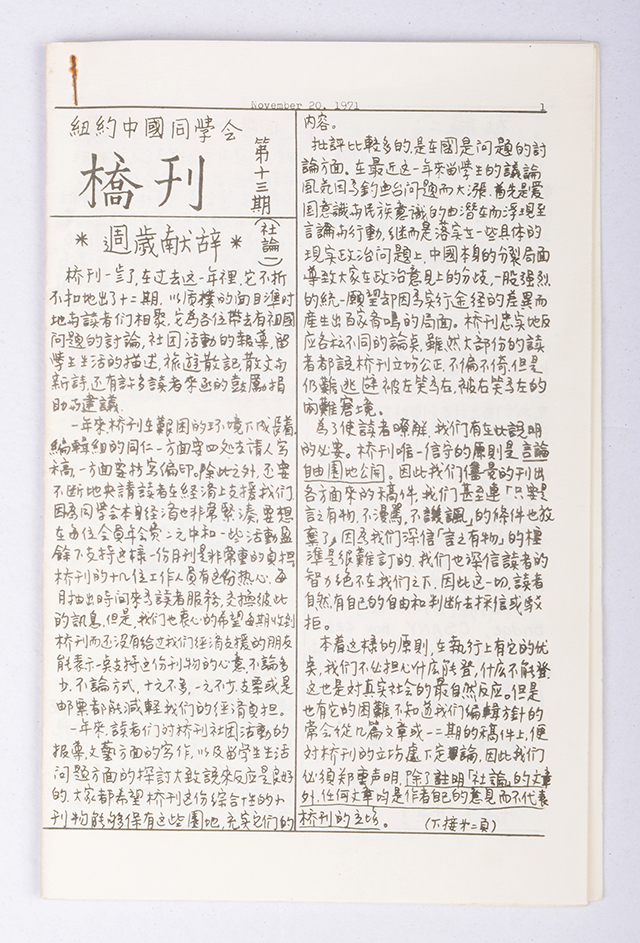 November 20, 1971
1
紐約中國同學会
橋刊
第十三期
(社論一)
* 週歲献辞 *
桥刊一岁了,在过去这一年裡,它不折
不扣地出了十二期.以质樸的面目準时
地与読者们相聚.它為各位帶去有祖國
问题的討論,社団活動的報導,留
學生生活的描述,旅遊散記,散文与
新詩,还有許多読者来函的鼓厲,捐
助与建議.
一年来桥刊在艱困的环境下成長着,
編輯組的同仁一方面要四处去请人写
稿,一方面要抄写偏印.除此之外,还要
不断地央請読者在経濟上支援我们.
因為同學会本身経濟也非常緊湊,要想
在每位会員年会费二元中和一些活動盈
餘下支持这樣一份月刊是非常重的負担
桥刊的十几位工作人員有这份热心,每
月抽出時间来為読者服務,交換彼此
的訊息,但是,我们也衷心的希望每期收到
桥刊而还没有给过我们経濟支援的朋友
能表示一奌支持这份刊物的心意,不論多
少,不論方式,十元不多,一元不少,支票或是
邮票都能減輕我们的経濟負担。
一年来,読者们对桥刊社团活動的
报導,文藝方面的寫作,以及留学生生活
问题方面的探討大致說来反应是良好
的,大家都希望桥刊这份綜合性的小
刊物能够保有这些園地,充实它们的
内容。
批評比較多的,是在國是问題的討
論方面。在最近这一年来留學生的議論
風気因為釣魚台问題而大漲,首先是愛
国意識与民族意識的由潜在而浮现至
言論与行動,继而是落实在一些具体的
现实政治问題上,中國本身的分裂局面
導致大家在政治意見上的分歧,一股强烈
的統一願望却因為实行途径的差異而
產生出百家爭鳴的局面。桥刊忠实地反
应各粒不同的論奌,雖然大部份的読
者都說桥刊立場公正,不偏不倚,但是
仍難逃避被左笑為右,被右笑為左的
兩難窘境。
為了使読者瞭解,我们有在此說明
的必要。桥刊唯一信守的原則是言論
自由園地公開。因此我们儘量的刊出
各方面来的稿件,我们甚至連「只要是
言之有物,不漫罵,不譏諷」的條件也放
棄了,因為我们深信「言之有物」的標
準是很難訂的,我们也深信読者的
智力絕不在我们之下,因此这一切,読者
自然有自己的自由和判断去採信或駁
拒。
本着这樣的原則,在執行上有它的优
奌,我们不必担心什広能登,什広不能登.
这也是对真实社会的最自然反应。但是
也有它的困難,不知道我们編輯方針的
常会從几篇文章或一二期的稿件上,便
对桥刊的立场處下定論,因此我们
必须郑重声明,除了註明「社論」的文章
外,任何文章均是作者自己的意見而不代表
桥刊的立场。
(下接第二頁)